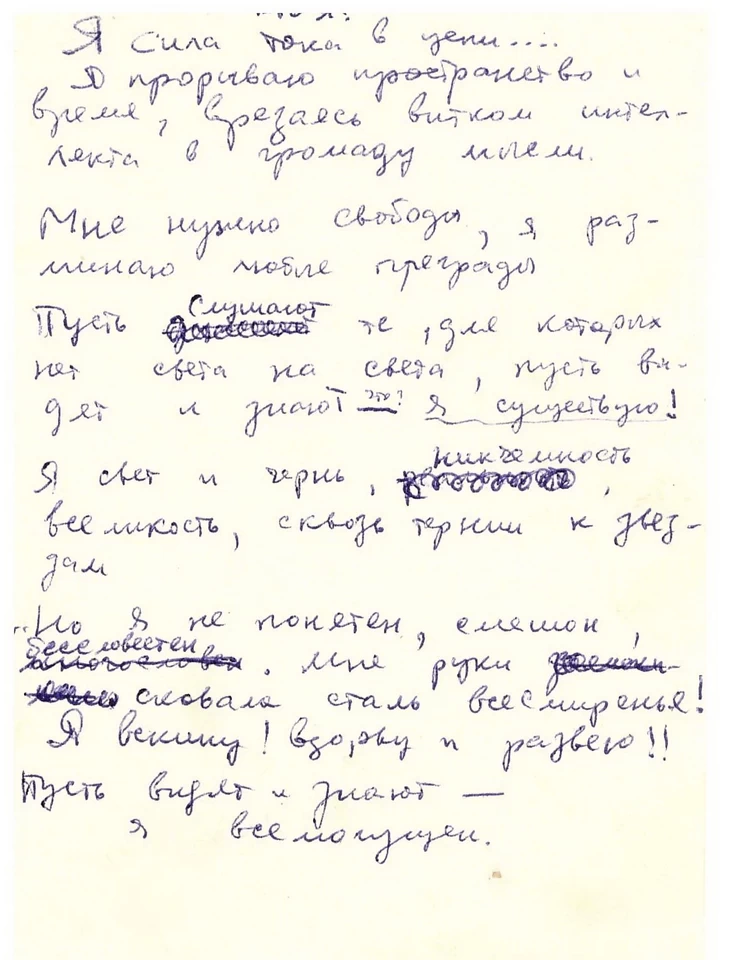 Я сила тока в цепи....
Я прорываю пространство и
время, врезаясь витком интел-
лекта в громаду мысли.
Мне нужно свободы, я раз-
минаю любые преграды
слушают
Пусть те, для которых
нет света на света, пусть ви-
дят и знают — это? я существую!
никчемность
Я свет и чернь, ,
вселикость, сквозь тернии к звез-
дам
..Но я не понятен, смешон,
бессловестен
многословен. Мне руки
сковала сталь всесмиренья!
Я вскину! взорву и развею!!
Пусть видят и знают —
я всемогущен.